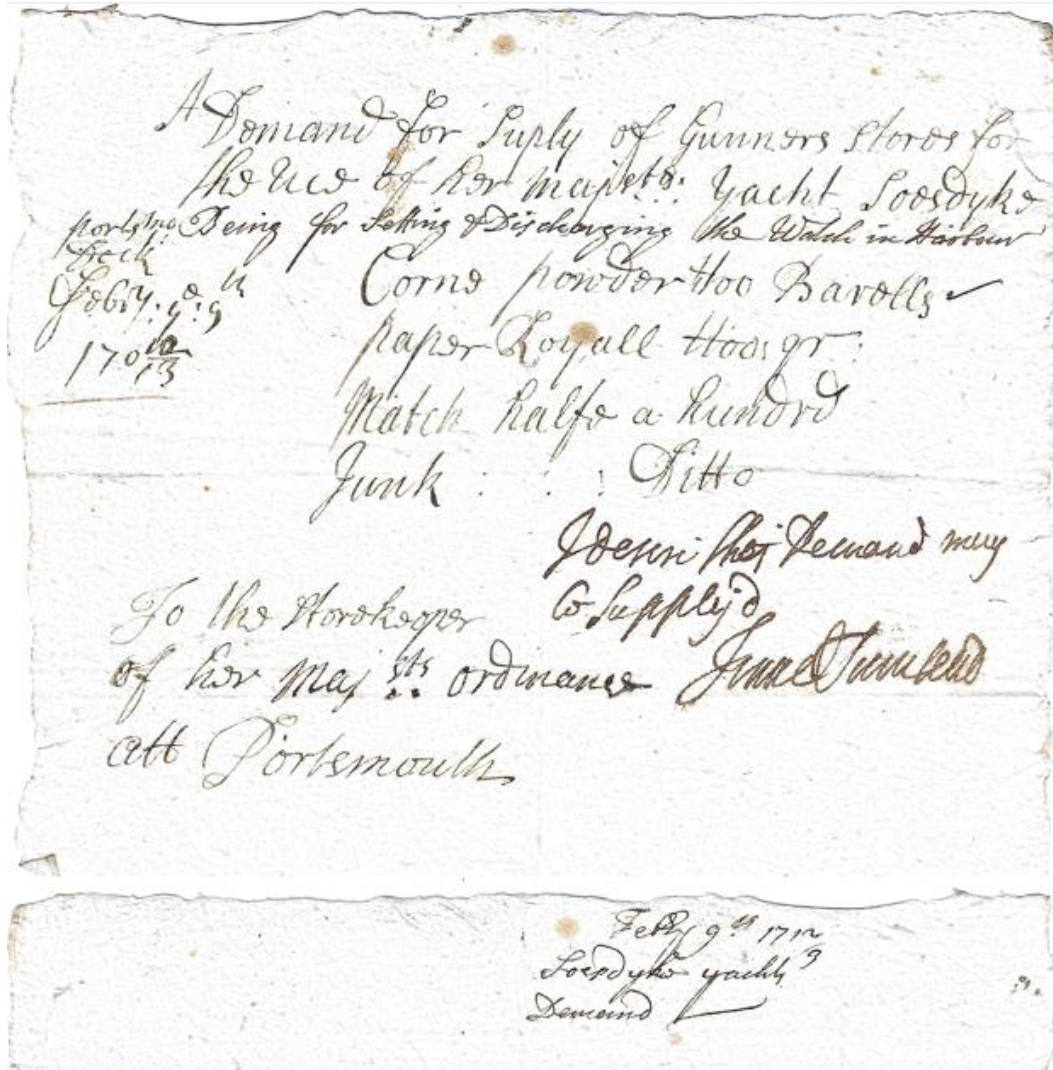 A Demand for Suply of Gunners Stores for
the Uce of her Majests: Yacht Soesdyke
Being for Setting & Discharging the Watch in Harbour
portsmo
Febry: ye: 9th
170 12/13
Corne powder Two Barells
paper Royall Two qr
Match halfe a hundrd
Junk : : : Ditto
I desire this Demand may
be Supply'd
To the Storekeeper
of her Majsts ordinance
att Portsmouth
Febry 9th 1712/3
Soesdyke yachts
Demand